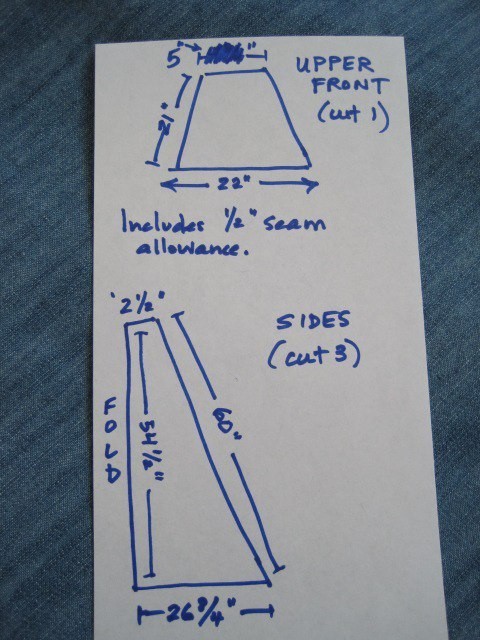 5"
UPPER
FRONT
(cut 1)
22"
Includes 1/2" seam
allowance.
2 1/2"
SIDES
(cut 3)
FOLD
54 1/2"
60"
26 3/4"